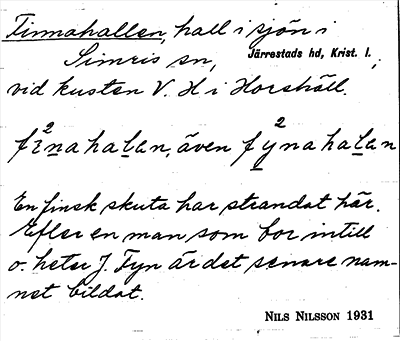 Finnahallen, hall i sjön i
Simris sn, Järrestads hd, Krist. l.,
vid kusten V. H i Horshäll.
2 2
fɪnahalan, även fynahalan
En finsk skuta har strandat här.
Efter en man som bor intill
o. heter J. Fyn är det senare nam-
net bildat.
NILS NILSSON 1931